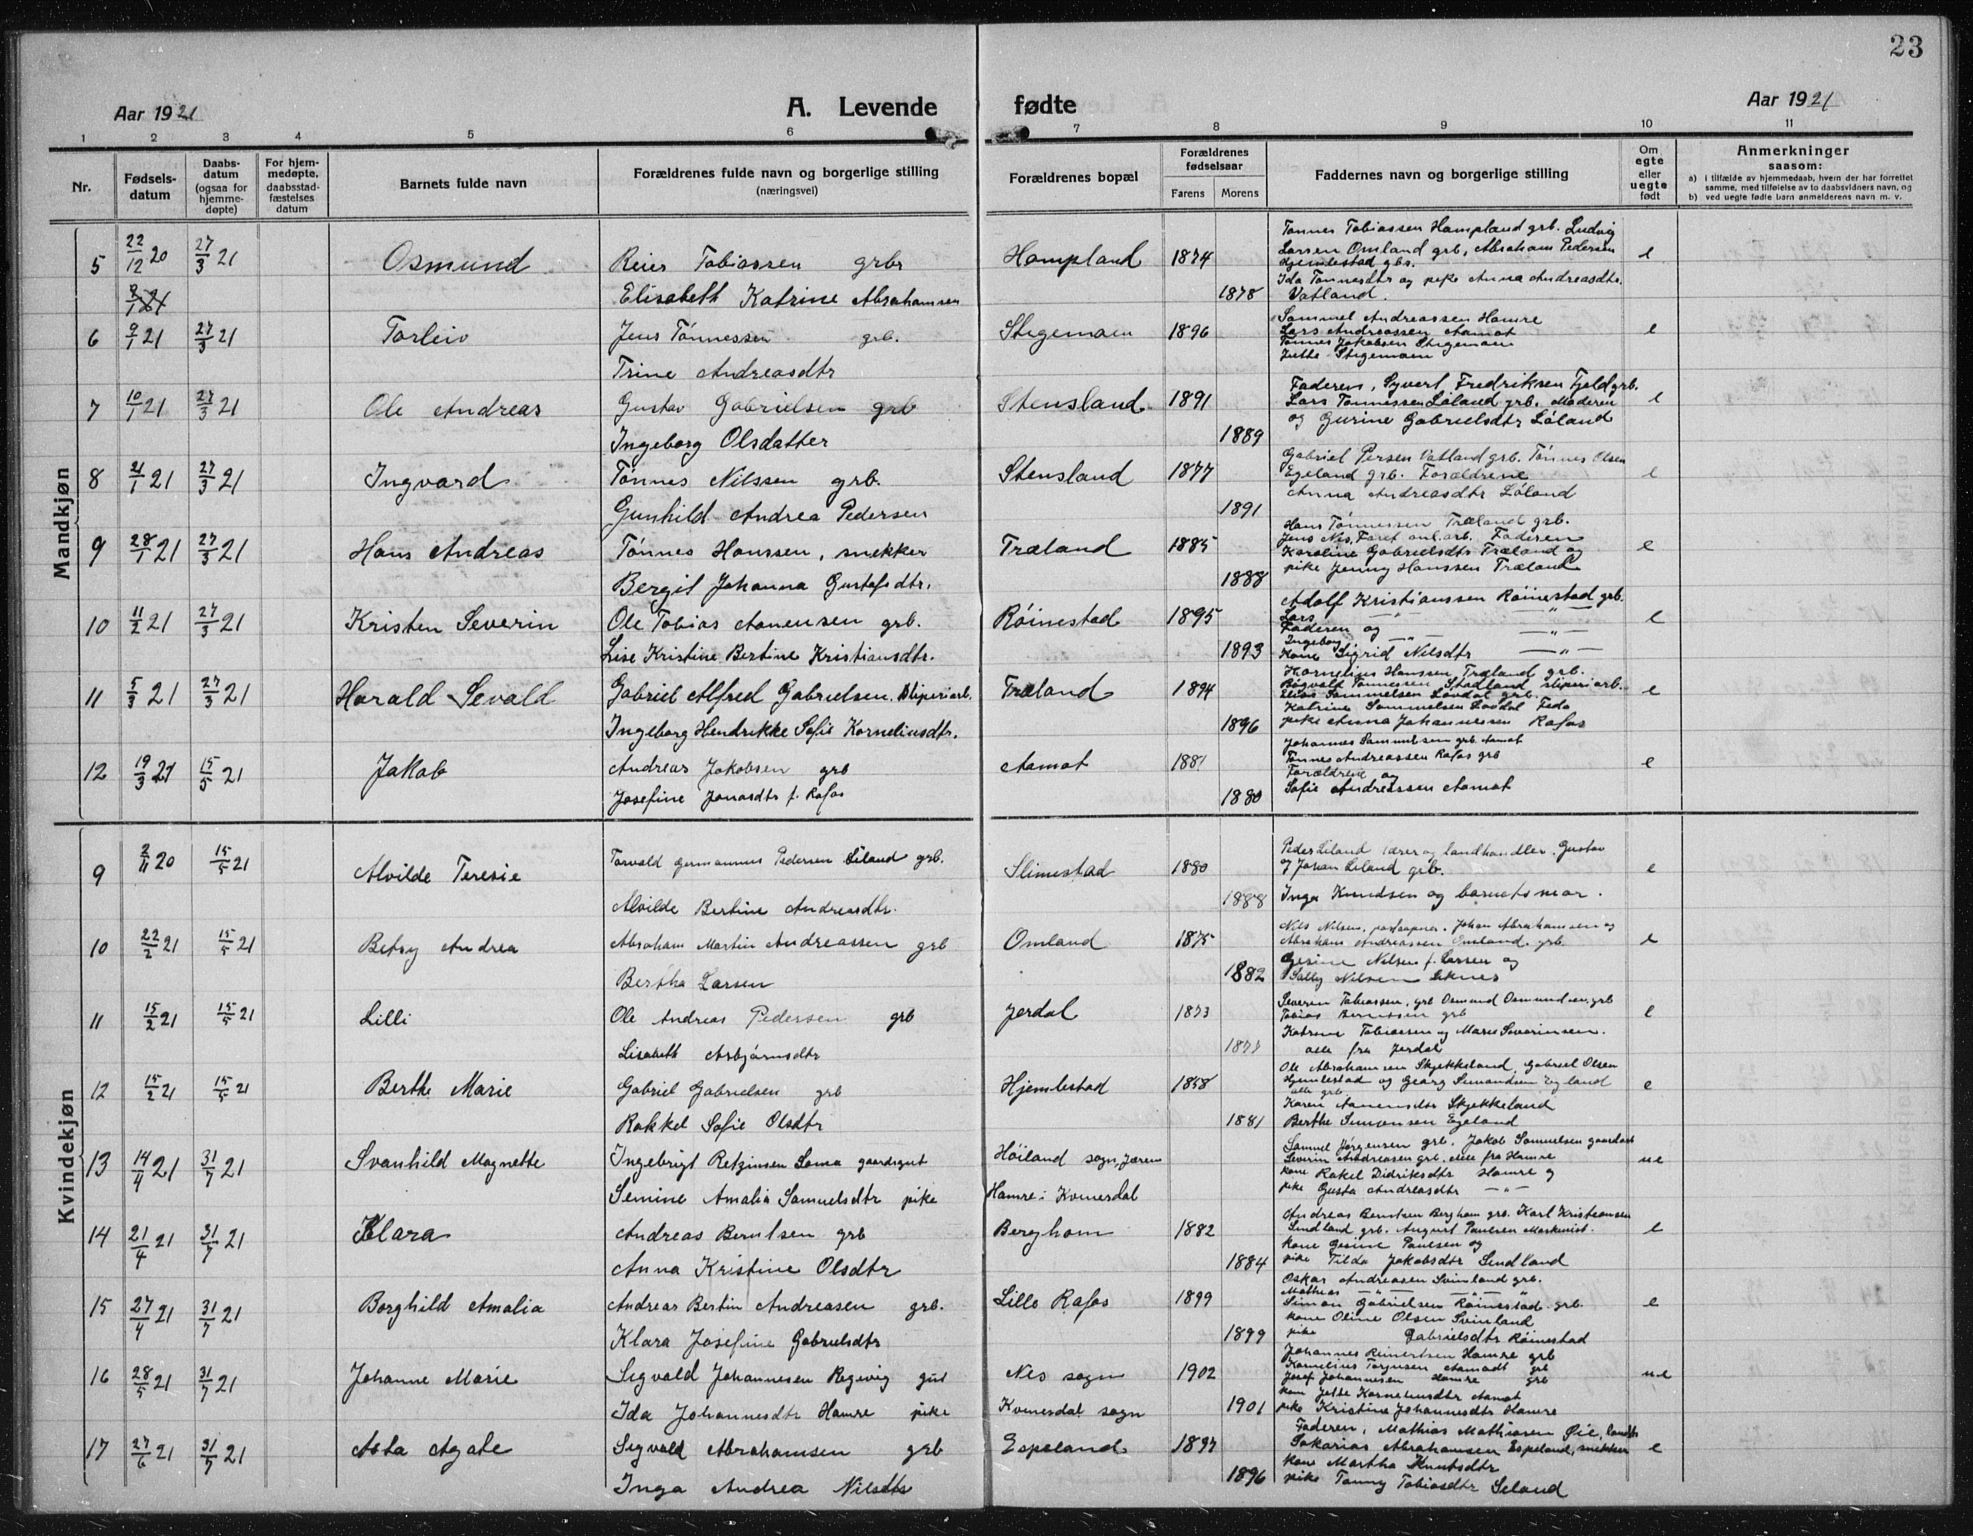 23
Aar 1921
A. Levende fødte
Aar 1921
1 2 3 4 5 6 7 8 9 10 11
Nr.
Fødsels-
datum
Daabs-
datum
(ogsaa for
hjemme-
døpte)
For hjem-
medøpte,
daabsstad-
fæstelses
datum
Barnets fulde navn
Forældrenes fulde navn og borgerlige stilling
(næringsvei)
Forældrenes bopæl
Forældrenes
fødselsaar
Farens Morens
Faddernes navn og borgerlige stilling
Om
egte
eller
uegte
født
Anmerkninger
saasom:
a) i tilfælde av hjemmedaab, hvem der har forrettet
samme, med tilføielse av to daabsvidners navn, og
b) ved uegte fødte barn anmelderens navn m. v.
Mandkjøn
5 22/12 20 27/3 21 Osmund Reier Tobiassen grbr Hampland 1874 e
Elisabeth Katrine Abrahamsen 1878
Tønnes Tobiassen Hampland grb. Ludvig
Larsen Omland grb, Abraham Pedersen
Hjemlestad gbr.
Ida Tønnesdtr og pike Anna Andreasdtr.
Vatland.
6 9/1 21 27/3 21 Torleiv Jens Tønnessen grb. Stigemoen 1896 e
Trine Andreasdtr
Sammel Andreassen Hamre
Lars Andreassen Aamot
Tønnes Jakobsen Stigemoen
Jutte Stigemoen
7 10/1 21 27/3 21 Ole Andreas Gustav Gabrielsen grb Stensland 1891 e
Ingeborg Olsdatter 1889
Faderen, Syvert Fredriksen Fjeld grb.
Lars Tønnessen Løland grb. Moderen
og Gurine Gabrielsdtr Løland
8 21/1 21 27/3 21 Ingvard Tønnes Nilssen grb. Stensland 1877 e
Gunhild Andrea Pedersen 1891
Gabriel Persen Vatland grb. Tønnes Olsen
Egeland grb. Forældrene
Anna Andreasdtr Løland
9 28/1 21 27/3 21 Hans Andreas Tønnes Hanssen, snekker Træland 1885 e
Bergit Johanna Gustafsdtr. 1888
Hans Tønnessen Træland grb.
Jens Nis. Faret anl.arb. Faderen
Karoline Gabrielsdtr Træland og
pike Jenny Hanssen Træland
10 11/2 21 27/3 21 Kristen Severin Ole Tobias Aanensen grb. Røinestad 1895 e
Lise Kristine Bertine Kristiansdtr. 1893
Adolf Kristianssen Røinestad grb.
Lars — " — — " —
Faderen og — " — — " —
Ingeborg
Kone Sigrid Nilsdtr — " —
11 5/3 21 27/3 21 Harald Sevald Gabriel Alfred Gabrielsen. Sliperiarb. Træland 1894 e
Ingeborg Hendrikke Sofie Korneliusdtr. 1896
Kornelius Hanssen Træland grb.
Bøgvald Tønnessen Stadland sliperiarb.
Elias Sammelsen Lovdal grb.
Katrine Sammelsen Lovdal Feda
pike Anna Johannessen Rafos
12 19/3 21 15/5 21 Jakob Andreas Jakobsen grb Aamot 1881 e
Josefine Jonasdtr f. Rafos 1880
Johannes Sammelsen grb Aamot
Tønnes Andreassen Rafos grb
Forældrene og
Sofie Andreassen Aamot
Kvindekjøn
9 2/11 20 15/5 21 Alvilde Teresie Torvald Germannus Pedersen Liland grb. Slimestad 1880 e
Alvilde Bertine Andreasdtr. 1888
Peder Liland lærer og landhandler. Gustav
og Johan Liland grb.
Inga Knudsen og barnets mor.
10 22/2 21 15/5 21 Betsy Andrea Abraham Martin Andreassen grb Omland 1875 e
Bertha Larsen 1882
Nils Nilsen, postaapner. Johan Abrahamsen og
Abraham Andreassen Omland grb
Gesine Nilsen f. Larsen og
Sally Nilsen
11 15/2 21 15/5 21 Lilli Ole Andreas Pedersen grb Jerdal 1873 e
Lisabeth Asbjørnsdtr
Severin Tobiassen, grb Osmund Osmundsen, grb
Tobias Berntsen grb
Katrine Tobiassen og Marie Severinsen.
alle fra Jerdal
12 15/2 21 15/5 21 Berthe Marie Gabriel Gabrielsen grb Hjemlestad 1858 e
Rakkel Sofie Olsdtr 1881
Ole Abrahamsen Skjekkeland, Gabriel Olsen
Hjemlestad og Georg Simondsen Egeland
alle grb.
Karen Aanensdtr Skjekkeland
Berthe Simonsen Egeland
13 14/4 21 31/7 21 Svanhild Magnette Ingebrigt Retzinsen Soma gaardsgut Høiland sogn, Jæren ue
Semine Amalia Samuelsdtr pike Hamre i Kvinesdal
Samuel Jørgensen grb. Jakob Samuelsen gaardarb
Severin Andreasen grb. alle fra Hamre
kone Rakel Didriksdtr Hamre og
pike Gusta Andreasdtr — " —
14 21/4 21 31/7 21 Klara Andreas Berntsen grb Bergham 1882 e
Anna Kristine Olsdtr 1884
Andreas Berntsen Bergham grb. Karl Kristiansen
Sindland grb. August Paulsen Maskinist.
kone Gesine Paulsen og
pike Tilda Jakobsdtr Sindland
15 27/4 21 31/7 21 Borghild Amalia Andreas Bertin Andreasen grb. Lille Rafos 1899 e
Klara Josefine Gabrielsdtr 1899
Oskar Andreasen Svinland grb.
Mathias — " — — " — "
Simon Gabrielsen Røinestad grb.
kone Oline Olsen Svinland
pike Gabrielsdtr Røinestad
16 28/5 21 31/7 21 Johanne Marie Sigvald Johannesen Regevig gut Nes sogn 1902 ue
Ida Johannesdtr Hamre pike Kvinesdal sogn 1901
Johannes Reinertsen Hamre grb
Kornelius Torjusen Aamodt grb
Josef Johannesen Hamre grb
kone Jutte Korneliusdtr Aamot
pike Kristine Johannesdtr Hamre
17 27/6 21 31/7 21 Asta Agate Sigvald Abrahamsen grb Espeland 1897 e
Inga Andrea Nilsdtr 1896
Faderen, Mathias Mathiasen Øie, landh
Sakarias Abrahamsen Espeland, snekker
kone Martha Knutsdtr
pike Tanny Tobiasdtr Seland